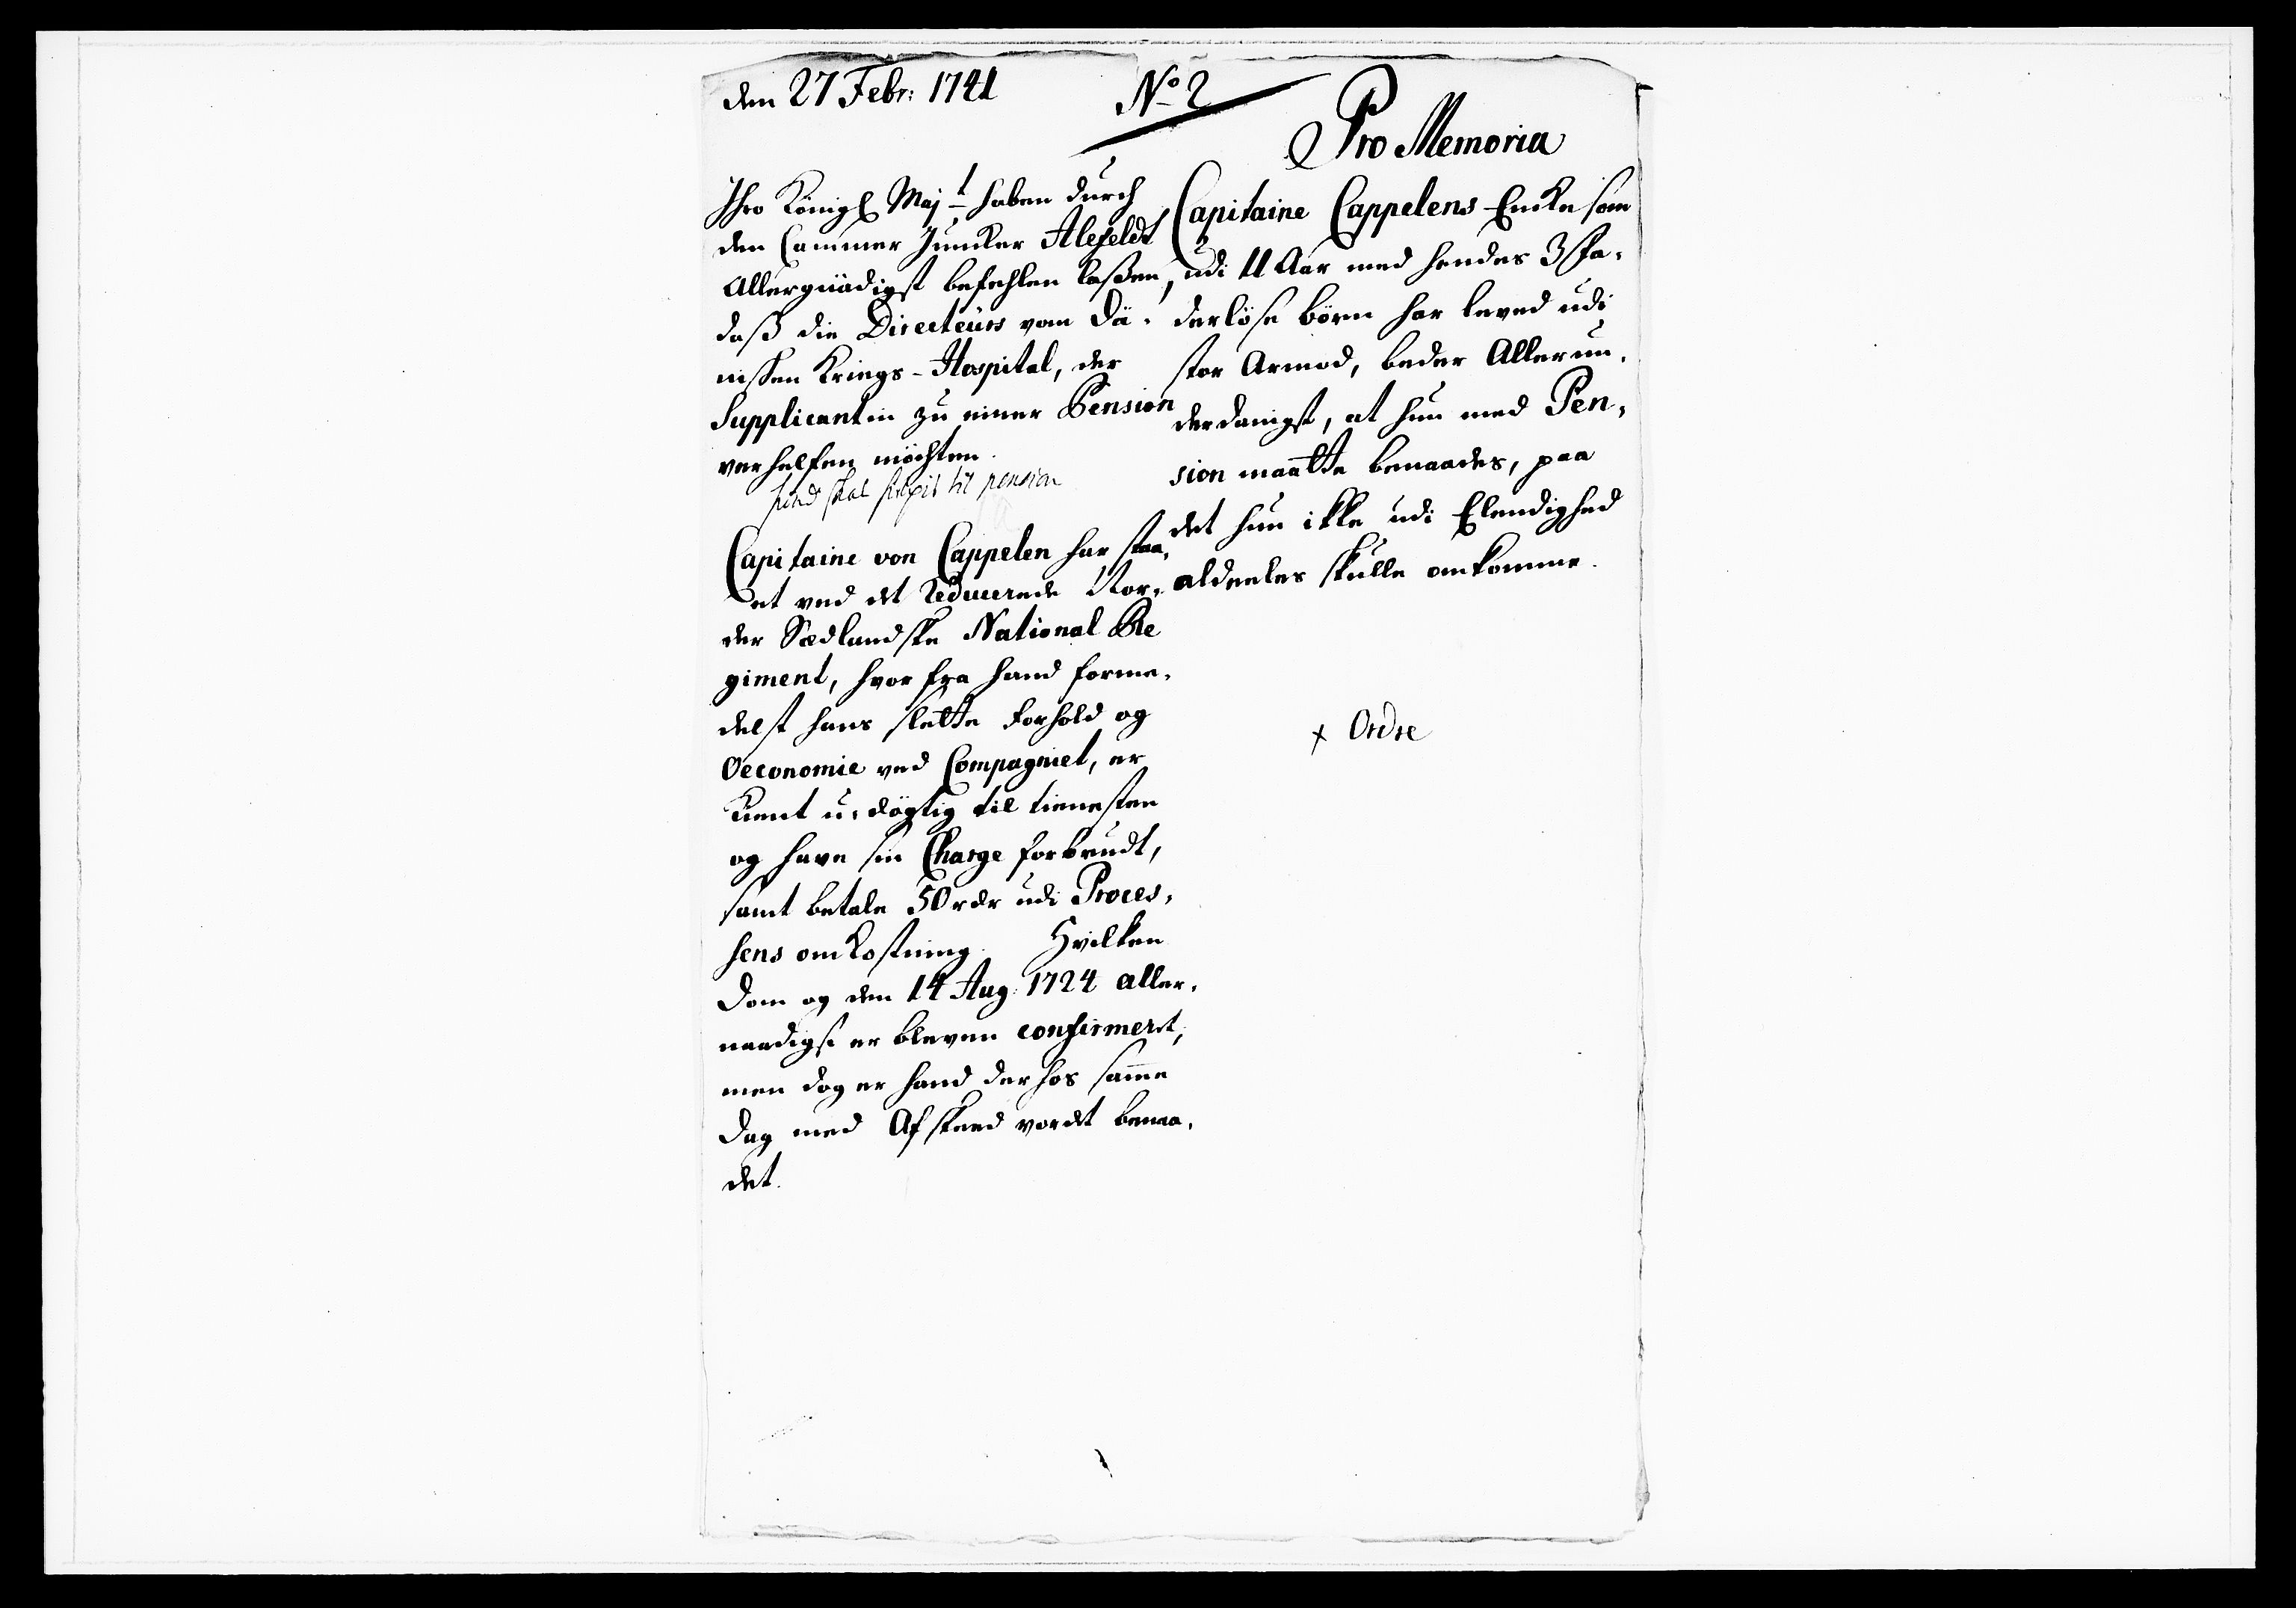 den 27 Febr: 1741
No 2
Pro Memoria
Ihro Königl Majt haben durch
den Cammer Juncker Alefeldt
Allergnädigst befehlen laßen,
daß die Directeurs vom Dä-
nischen Kriegs-Hospital, der
Supplicantin zu einer Pension
verhelfen möchten.
hund skal til pension
Capitaine von Cappelen har staa-
et ved det Reducerede Nor-
der Siedlandske National Re
giment, hvor fra hand forme-
delst hans slette forhold og
Oeconomie ved Compagniet, er
kient u-dögtig til tienesten
og have sin Charge forbrudt,
samt betale 50 rdr udi Proces-
sens omkostning. Hvilken
Dom og den 14 Aug: 1724 aller-
naadigst er bleven confirmeret,
men dog er hand der hos samme
Dag med Afskeed vordet benaa-
det.
Capitaine Cappelens Encke som
udi 11 Aar med hendes 3 Fa-
derlöse börn har leved udi
stor Armod, beder Allerun-
derdanigst, at hun med Pen-
sion maatte benaades, paa
det hun ikke udi Elendighed
aldeeles skulle omkomme.
x Ordre